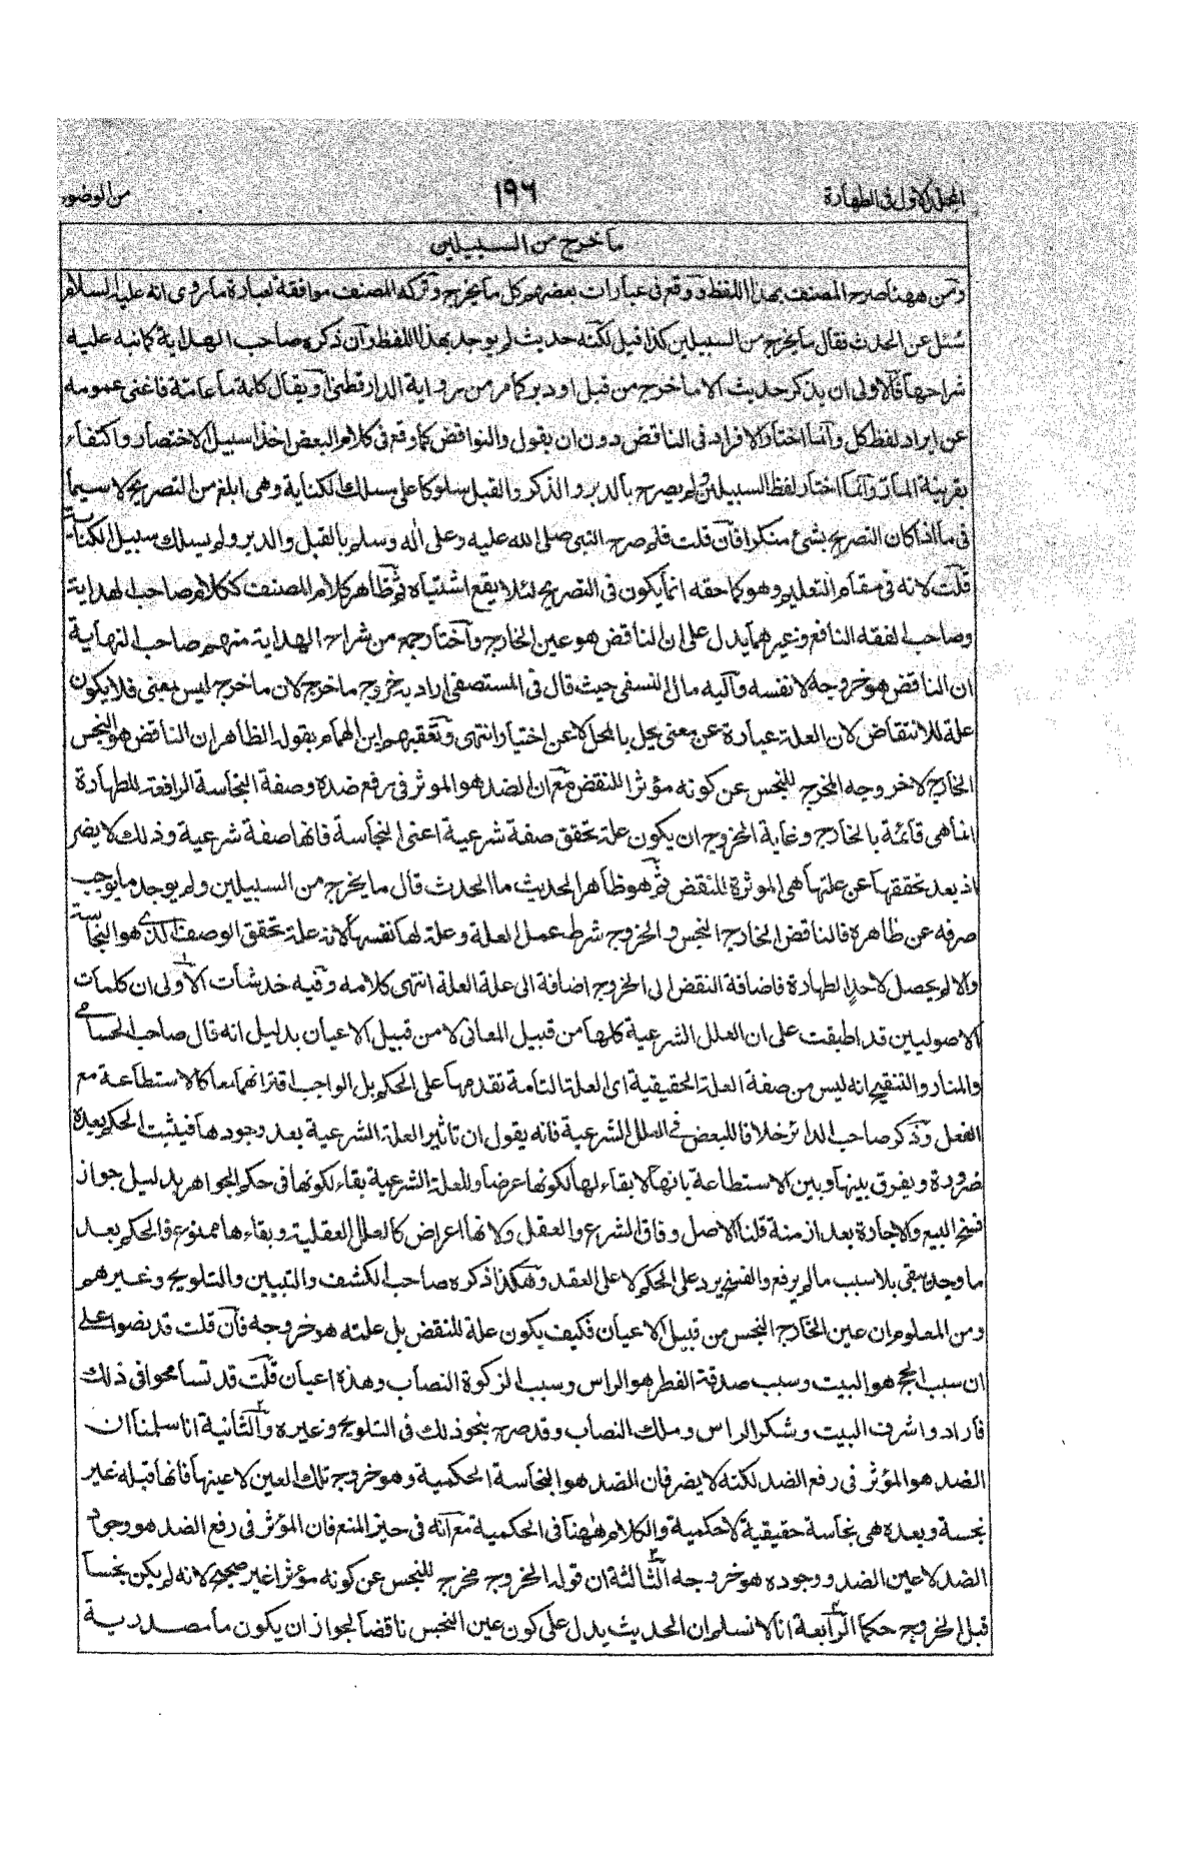 المجلد الاول فى الطهارة
١٩٦
من الوضوء
ما خرج من السبيلين
ومن ههنا صرح المصنف بهذا اللفظ ووقع فى عبارات بعضهم كل ما يخرج وتركه المصنف موافقة لعبارة ما روى انه عليه السلام
سئل عن الحدث فقال ما يخرج من السبيلين كذا قيل لكنه حديث لم يوجد بهذا اللفظ وان ذكره صاحب الهداية كما نبه عليه
شراحها فالاولى ان يذكر حديث الا ما خرج من قبل او دبر كما مر من رواية الدارقطنى او يقال كلمة ما عامة فاغنى عمومه
عن ايراد لفظ كل وانما اختار الافراد فى الناقض دون ان يقول والنواقض كما وقع فى كلام البعض اخذا سبيل الاختصار واكتفاء
بقرينة المادة وانما اختار لفظ السبيلين ولم يصرح بالدبر والذكر والقبل سلوكا على مسلك الكناية وهى ابلغ من التصريح لا سيما
فى ما اذا كان التصريح بشئ منكرا فان قلت فلم صرح النبى صلى الله عليه وعلى اله وسلم بالقبل والدبر ولم يسلك سبيل الكناية
قلت لانه فى مقام التعليم وهو كما حقه انما يكون فى التصريح لئلا يقع اشتباه ثم ظاهر كلام المصنف ككلام صاحب الهداية
وصاحب الفقه النافع وغيرهما يدل على ان الناقض هو عين الخارج واختار جمع من شراح الهداية منهم صاحب النهاية
ان الناقض هو خروجه لا نفسه واليه مال النسفى حيث قال فى المستصفى اراد به خروج ما خرج لان ما خرج ليس بمعنى فلا يكون
علة للانتقاض لان العلة عبارة عن معنى يحل بالمحل لا عن اختيار انتهى وتعقبهم ابن الهمام بقوله الظاهر ان الناقض هو النجس
الخارج لا خروجه المخرج للنجس عن كونه مؤثرا للنقض مع ان الضد هو الموثر فى رفع ضده وصفة النجاسة الرافعة للطهارة
انما هى قائمة بالخارج وغاية الخروج ان يكون علة تحقق صفة شرعية اعنى النجاسة فانها صفة شرعية وذلك لا يضر
اذ بعد تحققها عن علتها هى الموثرة للنقض ثم هو ظاهر الحديث ما الحدث قال ما يخرج من السبيلين ولم يوجد ما يوجب
صرفه عن ظاهره فالناقض الخارج النجس والخروج شرط عمل العلة وعلة لها نفسها لانه علة تحقق الوصف الذى هو النجاسة
والا لم يحصل لاحد الطهارة فاضافة النقض الى الخروج اضافة الى علة العلة انتهى كلامه وفيه خدشات الاولى ان كلمات
الاصوليين قد اطبقت على ان العلل الشرعية كلها من قبيل المعانى لا من قبيل الاعيان بدليل انه قال صاحب الحسامى
والمنار والتنقيح انه ليس من صفة العلة الحقيقية اى العلة التامة تقدمها على الحكم بل الواجب اقترانهما معا كالاستطاعة مع
الفعل وذكر صاحب الدائر خلافا للبعض فى العلل الشرعية فانه يقول ان تاثير العلة الشرعية بعد وجودها فيثبت الحكم بعده
ضرورة ويفرق بينها وبين الاستطاعة بانها لا بقاء لها لكونها عرضا وللعلة الشرعية بقاء لكونها فى حكم الجواهر بدليل جواز
فسخ البيع والاجارة بعد ازمنة قلنا الاصل وفاق الشرع والعقل ولانها اعراض كالعلل العقلية وبقاءها ممنوع والحكم بعد
ما وجد يبقى بلا سبب ما لم يرفع والفسخ يرد على الحكم لا على العقد وهكذا ذكره صاحب الكشف والتبيين والتلويح وغيرهم
ومن المعلوم ان عين الخارج النجس من قبيل الاعيان فكيف يكون علة للنقض بل علته هو خروجه فان قلت قد نصوا على
ان سبب الحج هو البيت وسبب صدقة الفطر هو الراس وسبب الزكوة النصاب وهذه اعيان قلت قد تسامحوا فى ذلك
فارادوا شرف البيت وشكر الراس وملك النصاب وقد صرح بنحو ذلك فى التلويح وغيره والثانية انا سلمنا ان
الضد هو المؤثر فى رفع الضد لكنه لا يضر فان الضد هو النجاسة الحكمية وهو خروج تلك العين لا عينها فانها قبله غير
نجسة وبعده هى نجاسة حقيقية لا حكمية والكلام ههنا فى الحكمية مع انه فى حيز المنع فان المؤثر فى رفع الضد هو وجود
الضد لا عين الضد ووجوده هو خروجه الثالثة ان قوله الخروج مخرج للنجس عن كونه مؤثرا غير صحيح لانه لم يكن نجسا
قبل الخروج حكما الرابعة انا لا نسلم ان الحديث يدل على كون عين النجس ناقضا لجواز ان يكون ما مصدرية